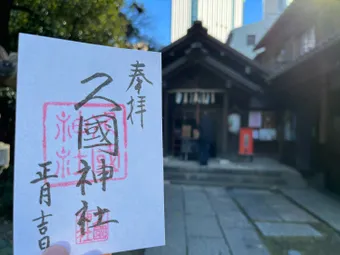 奉拝
久國神社
正月吉日